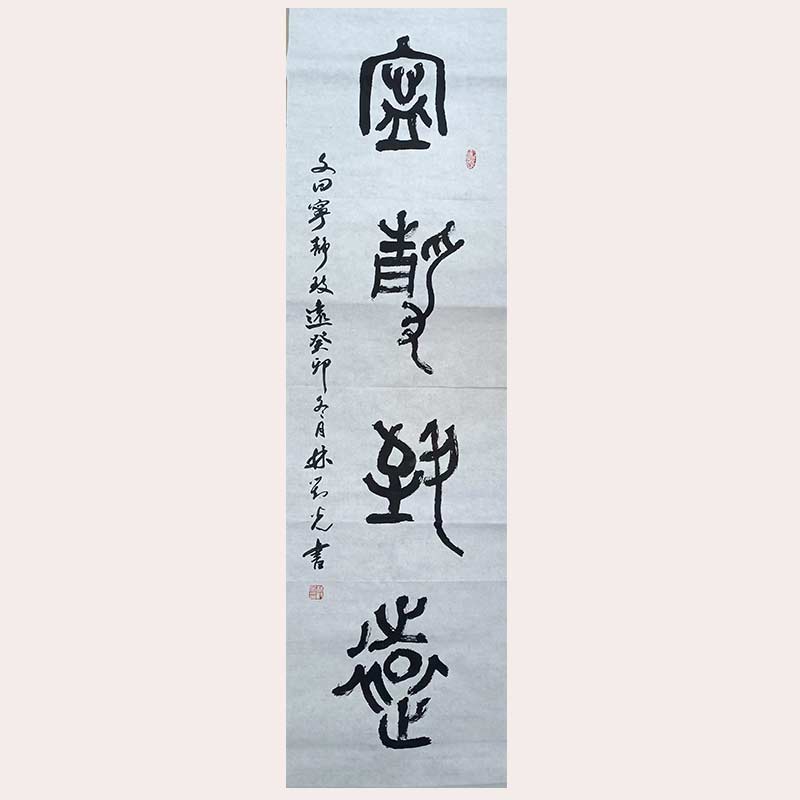 寧靜致遠
文曰寧靜致遠癸卯冬月林万光書